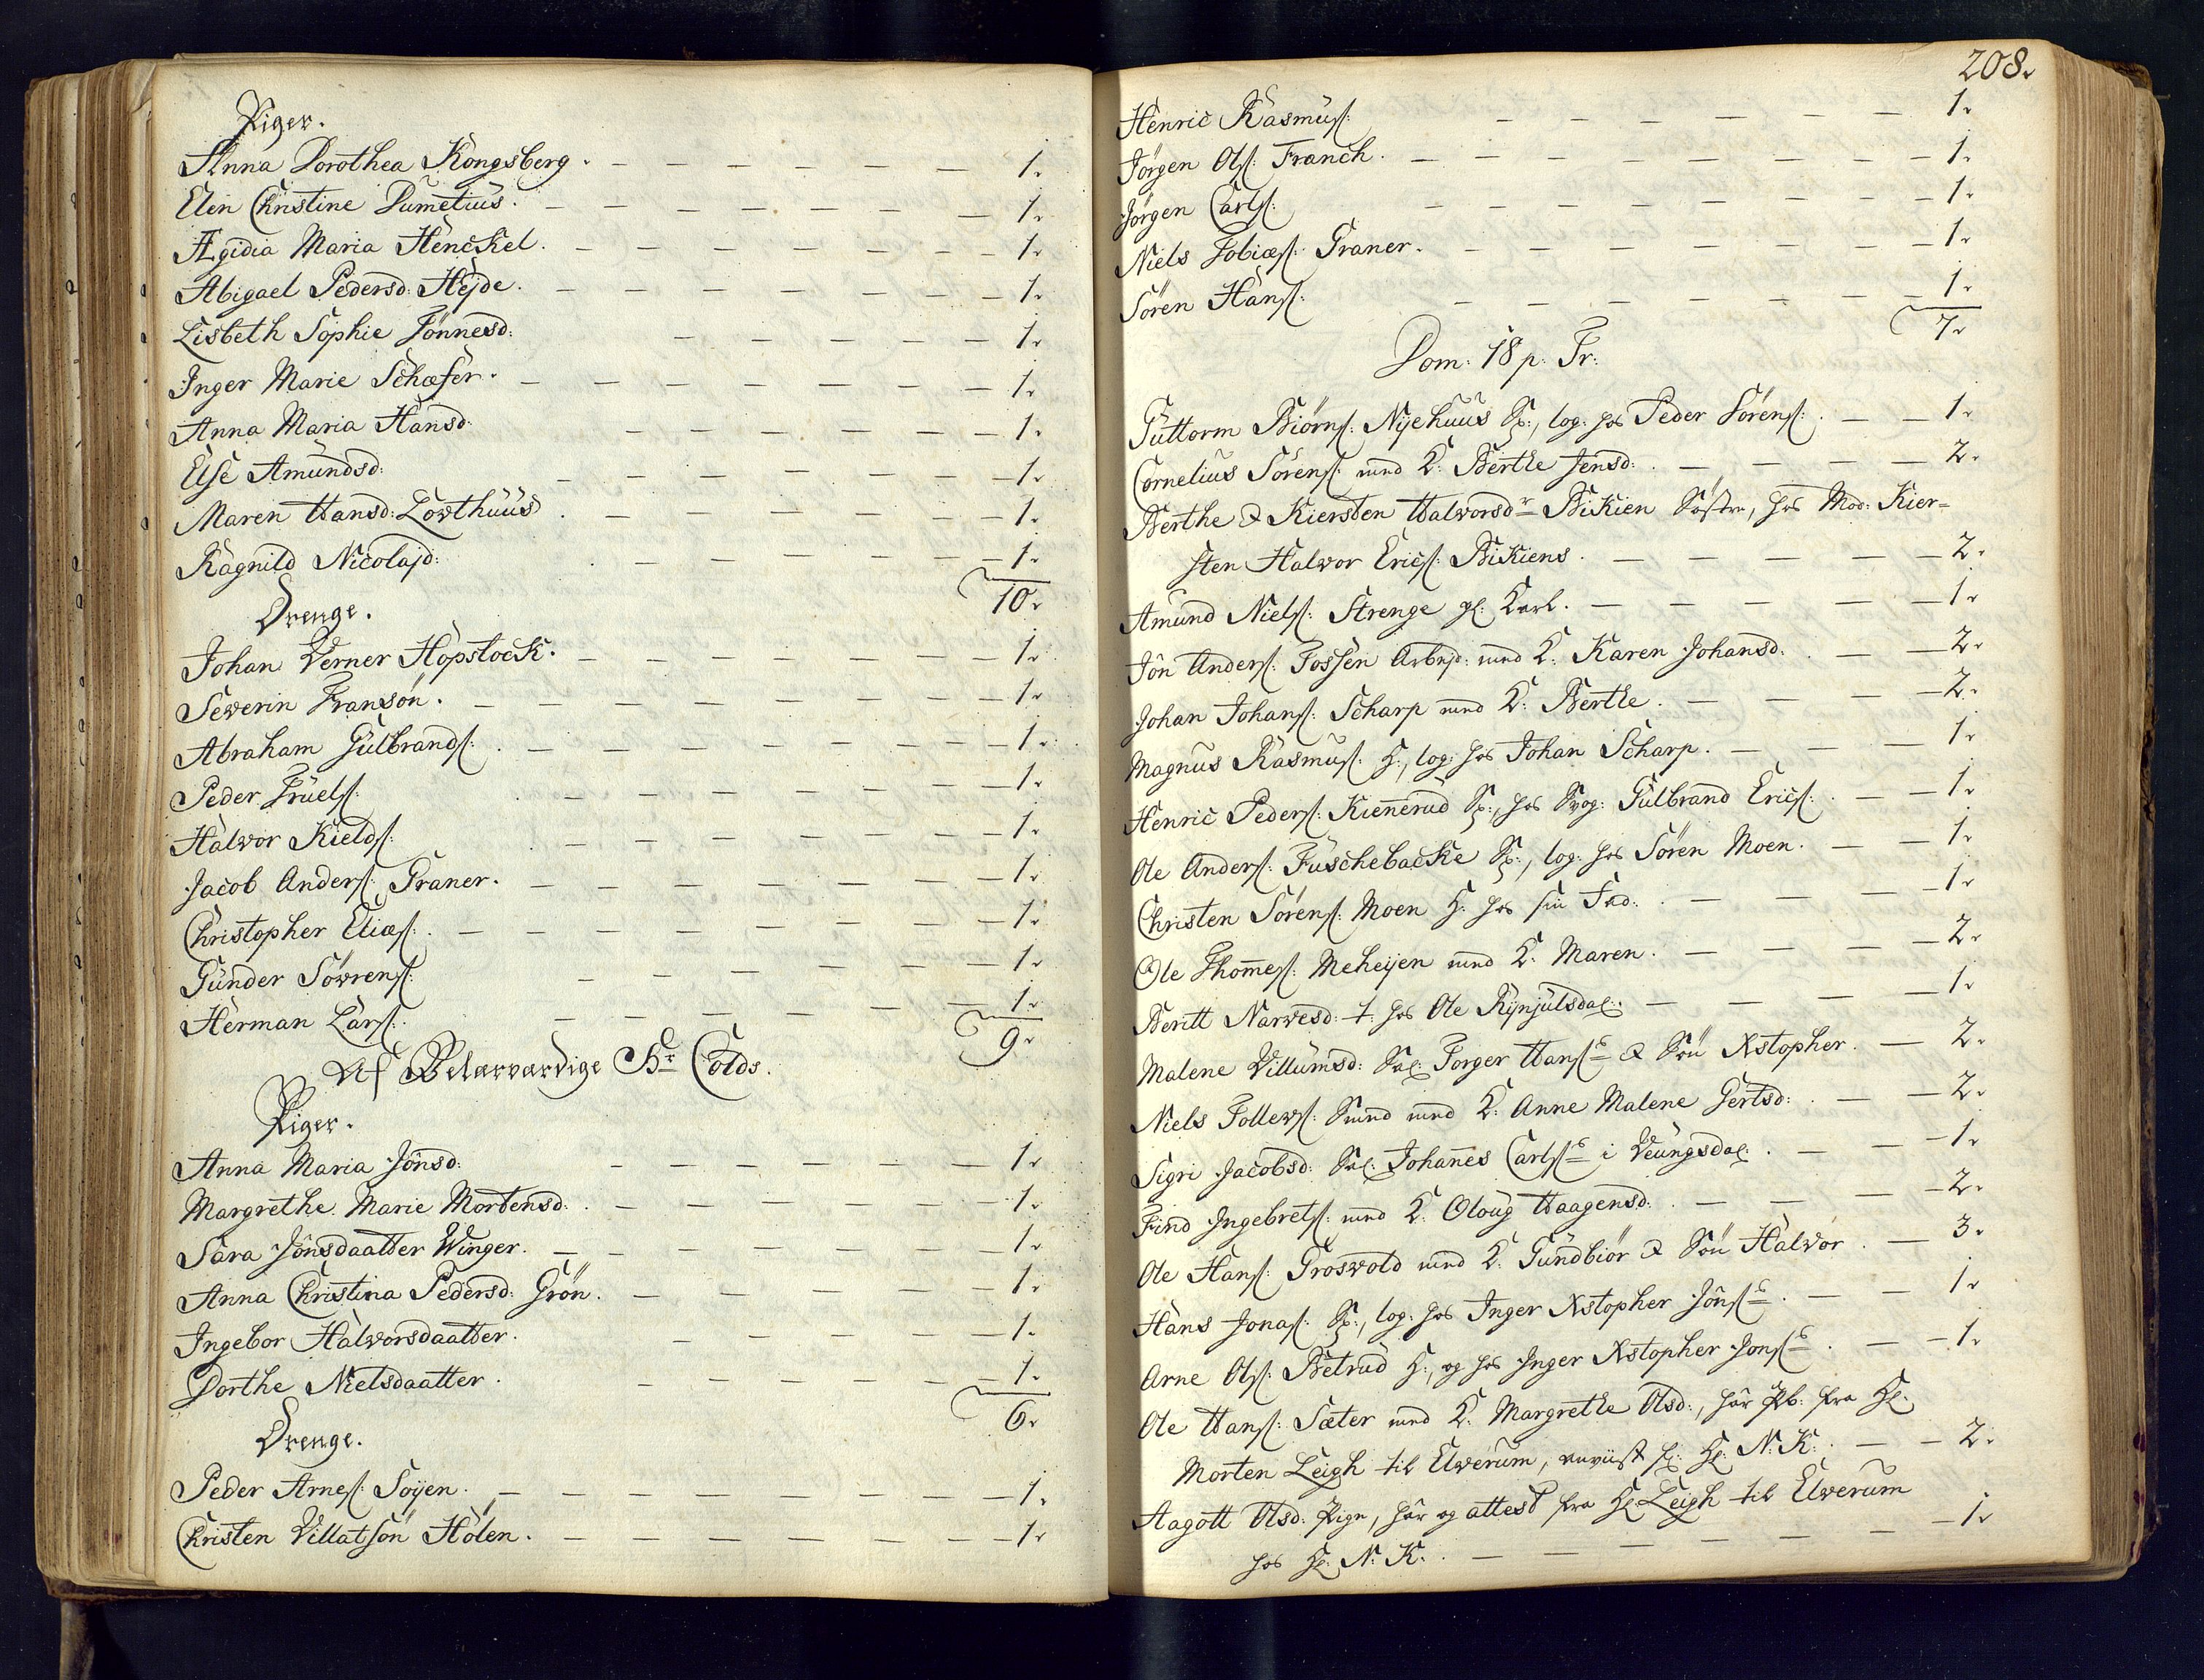 Piger.
Anna Dorothea Kongsberg. — — — — — — 1.
Elen Christine Dumetius. — — — — — — 1.
Ægidia Maria Henckel. — — — — — — 1.
Abigael Pedersd: Hejde. — — — — — — 1.
Lisbeth Sophie Tönnesd: — — — — — 1.
Inger Marie Schæfer. — — — — — — 1.
Anna Maria Hansd: — — — — — — 1.
Else Amundsd: — — — — — — 1.
Maren Hansd: Lowthuus. — — — — — — 1.
Ragnild Nicolajd: — — — — — 1.
10.
Drenge.
Johan Verner Hopstock. — — — — — — 1.
Severin Fransön. — — — — — — 1.
Abraham Gulbrands: — — — — — — 1.
Peder Truels: — — — — — — 1.
Halvor Kields: — — — — — — 1.
Jacob Anders: Graner. — — — — — — 1.
Christopher Elias: — — — — — — 1.
Gunder Sövrens: — — — — — 1.
Herman Lars: — — — — — — 1.
9.
Af Velærværdige Hr Colds.
Piger.
Anna Maria Jönsd: — — — — — — 1.
Margrethe Marie Mortensd: — — — — — — 1.
Sara Jönsdaatter Winger. — — — — — — 1.
Anna Christina Pedersd: Grön. — — — — — 1.
Ingebor Halvorsdaatter. — — — — — 1.
Dorthe Nielsdaatter. — — — — — 1.
6.
Drenge.
Peder Arnes: Soÿen. — — — — — — 1.
Christen Villatsön Hölen. — — — — — — 1.
208.
Henric Rasmus: — — — — — — 1.
Jörgen Ols: Franch. — — — — — — 1.
Jörgen Carls: — — — — — — 1.
Niels Tobiæs: Graner. — — — — — — 1.
Sören Hans: — — — — — — 1.
7.
Dom: 18 p: Tr:
Guttorm Biörns: Nÿehuus Sp:, log: hos Peder Sörens: — — 1.
Cornelius Sörens: med K: Berthe Jensd: — — — — 2.
Berthe & Kiersten Halvorsdr Bikien Söstre, hos Mod: Kier=
sten Halvor Erics: Bikiens. — — — — — 2.
Amund Niels: Strenge gl: Karl. — — — — — 1.
Jön Anders: Fossen Arbejd: med K: Karen Johansd: — — 2.
Johan Johans: Scharp med K: Berthe. — — — — 2.
Magnus Rasmus: H:, log: hos Johan Scharp. — — — — 1.
Henric Peders: Kiennerud Sp:, hos Svog: Gulbrand Erics: — — 1.
Ole Anders: Fuschebacke Sp:, log: hos Sören Moen. — — 1.
Christen Sörens: Moen H: hos sin Fad: — — — — 1.
Ole Thommes: Meheÿen med K: Maren. — — — — 2.
Beritt Narvesd: t: hos Ole Rÿnjulsdal: — — — — 1.
Malene Villumsd: Sal: Torger Hanss & Sön Xstopher. — 2.
Niels Tollevs: Smed med K: Anne Malene Gertsd: — — 2.
Sigri Jacobsd: Sal: Johannes Carlss i Veungsdal: — — — 1.
Find Ingebrets: med K: Oloug Haagensd: — — — 2.
Ole Hans: Groswold med K: Gundbiör & Sön Halvor. — 3.
Hans Jonas: Sp:, log: hos Inger Xstopher Jönss. — — 1.
Arne Ols: Betrud H:, og hos Inger Xstopher Jonss. — — 1.
Ole Hans: Sæter med K: Margrethe Olsd:, har fra Hr:
Morten Leigh til Elverum, Hr: N: K: — — 2.
Aagott Olsd: Pige, har og attest fra Hr: Leigh til Elverum
hos Hr: N: K: — — — — — — 1.